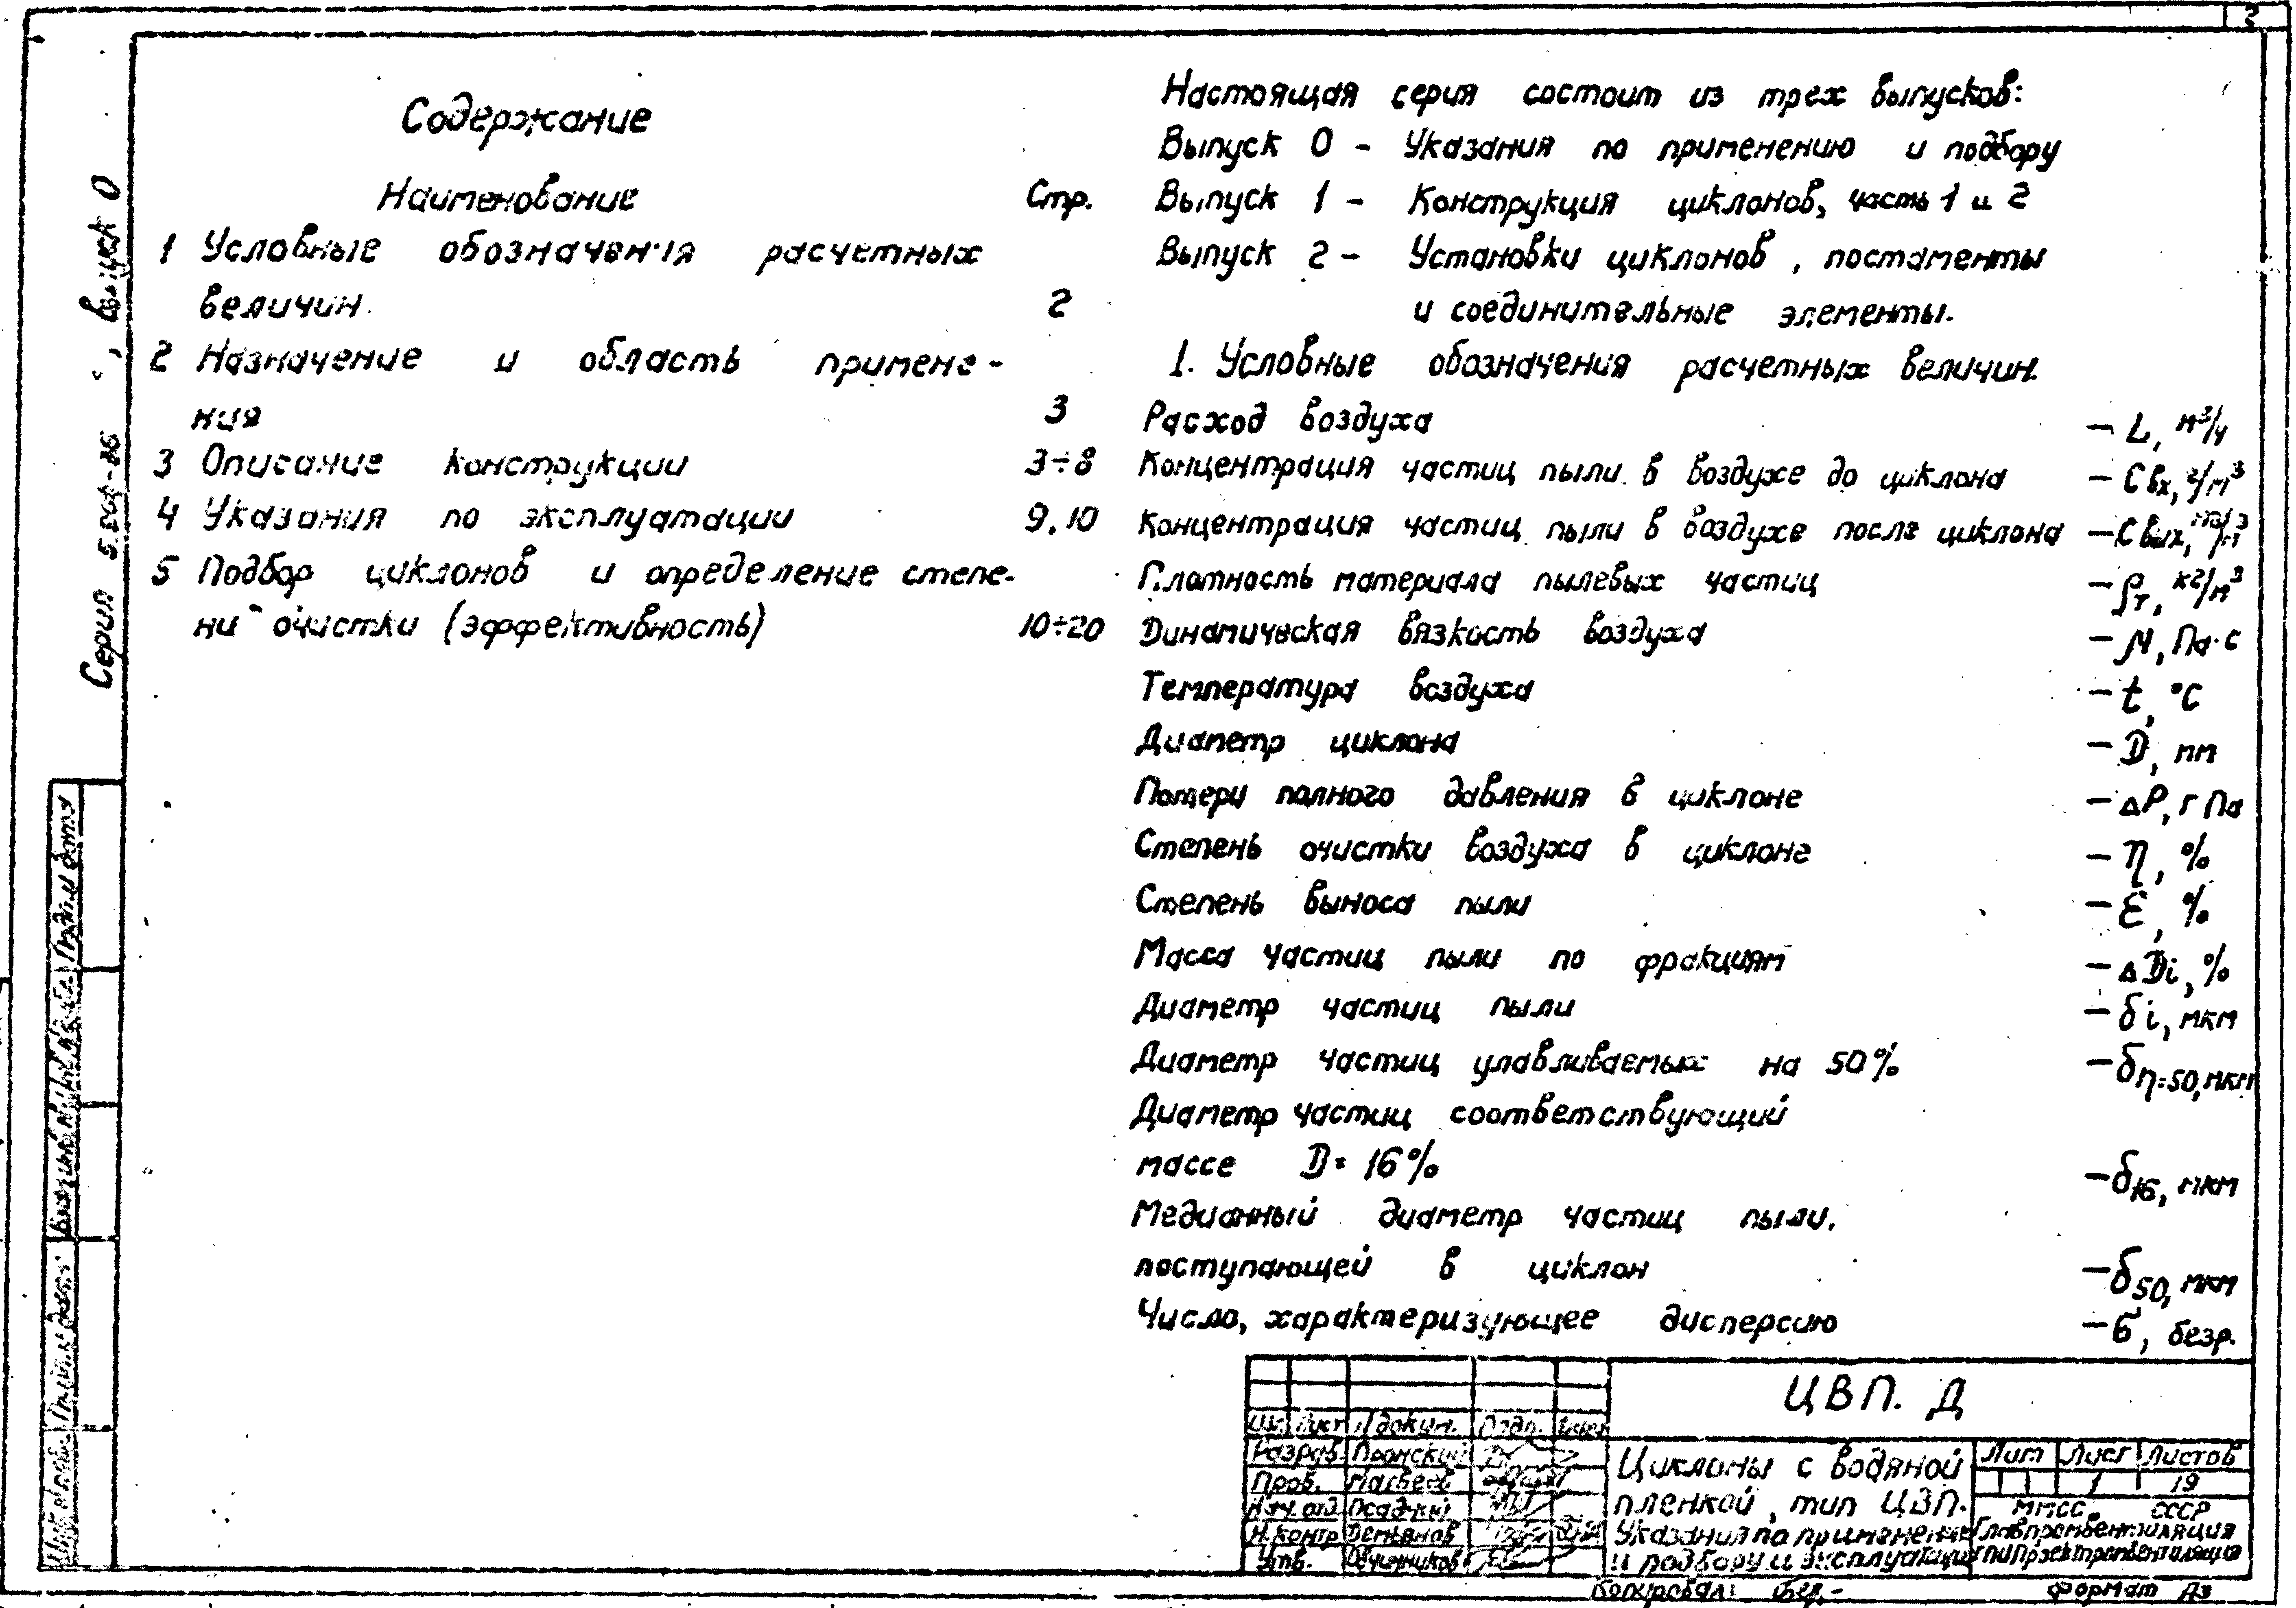 2
Содержание
Наименование Стр.
1 Условные обозначения расчетных
величин. 2
2 Назначение и область примене-
ния 3
3 Описание конструкции 3÷8
4 Указания по эксплуатации 9,10
5 Подбор циклонов и определение степе-
ни очистки (эффективность) 10÷20
Настоящая серия состоит из трех выпусков:
Выпуск 0 - Указания по применению и подбору
Выпуск 1 - Конструкция циклонов, часть 1 и 2
Выпуск 2 - Установки циклонов, постаменты
и соединительные элементы.
1. Условные обозначения расчетных величин.
Расход воздуха – L, м³/ч
Концентрация частиц пыли в воздухе до циклона – Cвх, г/м³
Концентрация частиц пыли в воздухе после циклона – Cвых, мг/м³
Плотность материала пылевых частиц – ρт, кг/м³
Динамическая вязкость воздуха – μ, Па·с
Температура воздуха – t, °C
Диаметр циклона – D, мм
Потери полного давления в циклоне – ΔP, гПа
Степень очистки воздуха в циклоне – η, %
Степень выноса пыли – ε, %
Масса частиц пыли по фракциям – ΔDi, %
Диаметр частиц пыли – δi, мкм
Диаметр частиц улавливаемых на 50% – δη=50, мкм
Диаметр частиц соответствующий
массе D=16% – δ16, мкм
Медианный диаметр частиц пыли,
поступающей в циклон – δ50, мкм
Число, характеризующее дисперсию – б, безр.
Серия 5.904- , выпуск 0
ЦВП. Д
Изм. Лист № докум. Подп. Дата
Разраб. Пронский
Пров. Матвеев
Нач. отд. Осадчий
Н.контр Демьянов
Утв. Овчинников
Циклоны с водяной
пленкой, тип ЦВП.
Указания по применению
и подбору и эксплуатации
Лит Лист Листов
1 19
ММСС СССР
Главпромвентиляция
ГПИ Проектпромвентиляция
Копировал: Формат А3